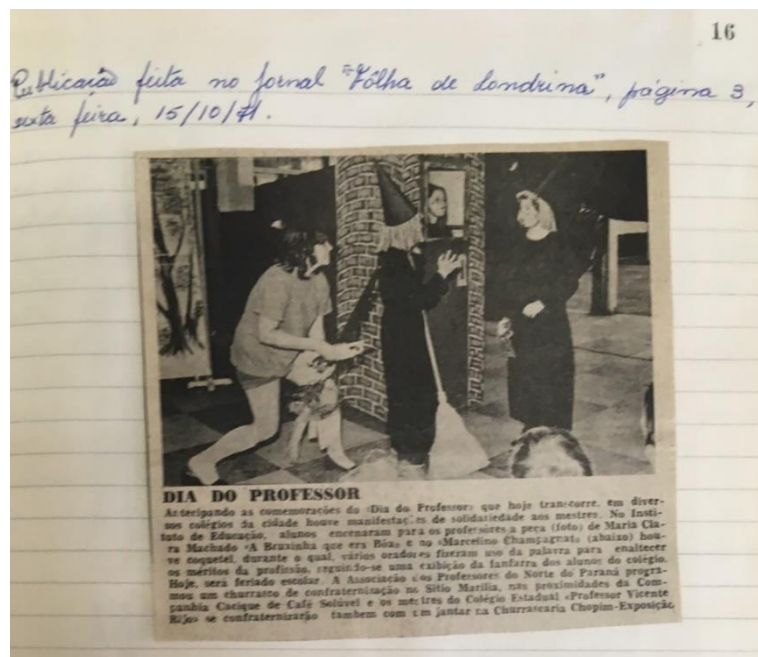 16
Publicação feita no jornal "Fôlha de Londrina", página 3,
sexta feira, 15/10/71.
DIA DO PROFESSOR
Antecipando as comemorações do «Dia do Professor» que hoje transcorre, em diver-
sos colégios da cidade houve manifestações de solidariedade aos mestres. No Insti-
tuto de Educação, alunos encenaram para os professôres a peça (foto) de Maria Cla-
ra Machado «A Bruxinha que era Bôa» e no «Marcelino Champagnat» (abaixo) hou-
ve coquetel, durante o qual, vários oradores fizeram uso da palavra para enaltecer
os méritos da profissão, seguindo-se uma exibição da fanfarra dos alunos do colégio.
Hoje, será feriado escolar. A Associação dos Professores do Norte do Paraná progra-
mou um churrasco de confraternização no Sítio Marília, nas proximidades da Com-
panhia Cacique de Café Solúvel e os mestres do Colégio Estadual «Professor Vicente
Rijo» se confraternizarão também com um jantar na Churrascaria Chopim-Exposição